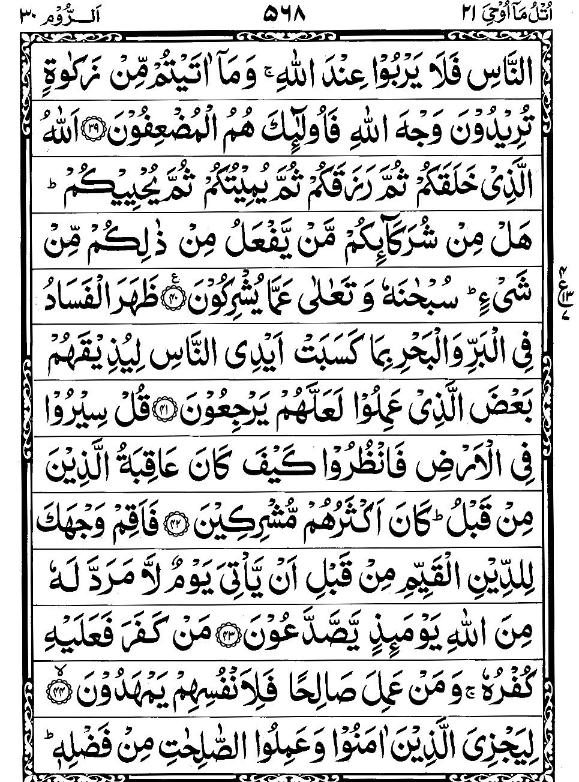 اتل ما اوحی ۲۱ ۵۶۸ الروم ۳۰
النَّاسِ فَلَا يَرْبُوْا عِنْدَ اللّٰهِ ۚ وَمَاۤ اٰتَيْتُمْ مِّنْ زَكٰوةٍ
تُرِيْدُوْنَ وَجْهَ اللّٰهِ فَاُولٰٓئِكَ هُمُ الْمُضْعِفُوْنَ ﴿۳۹﴾ اَللّٰهُ
الَّذِيْ خَلَقَكُمْ ثُمَّ رَزَقَكُمْ ثُمَّ يُمِيْتُكُمْ ثُمَّ يُحْيِيْكُمْ ؕ
هَلْ مِنْ شُرَكَآئِكُمْ مَّنْ يَّفْعَلُ مِنْ ذٰلِكُمْ مِّنْ
شَيْءٍ ؕ سُبْحٰنَهٗ وَتَعٰلٰى عَمَّا يُشْرِكُوْنَ ﴿۴۰﴾ ظَهَرَ الْفَسَادُ
۴ ع ۱۳ ۷
فِي الْبَرِّ وَالْبَحْرِ بِمَا كَسَبَتْ اَيْدِي النَّاسِ لِيُذِيْقَهُمْ
بَعْضَ الَّذِيْ عَمِلُوْا لَعَلَّهُمْ يَرْجِعُوْنَ ﴿۴۱﴾ قُلْ سِيْرُوْا
فِي الْاَرْضِ فَانْظُرُوْا كَيْفَ كَانَ عَاقِبَةُ الَّذِيْنَ
مِنْ قَبْلُ ؕ كَانَ اَكْثَرُهُمْ مُّشْرِكِيْنَ ﴿۴۲﴾ فَاَقِمْ وَجْهَكَ
لِلدِّيْنِ الْقَيِّمِ مِنْ قَبْلِ اَنْ يَّاْتِيَ يَوْمٌ لَّا مَرَدَّ لَهٗ
مِنَ اللّٰهِ يَوْمَئِذٍ يَّصَّدَّعُوْنَ ﴿۴۳﴾ مَنْ كَفَرَ فَعَلَيْهِ
كُفْرُهٗ ۚ وَمَنْ عَمِلَ صَالِحًا فَلِاَنْفُسِهِمْ يَمْهَدُوْنَ ﴿۴۴﴾ ۙ
لِيَجْزِيَ الَّذِيْنَ اٰمَنُوْا وَعَمِلُوا الصّٰلِحٰتِ مِنْ فَضْلِهٖ ؕ